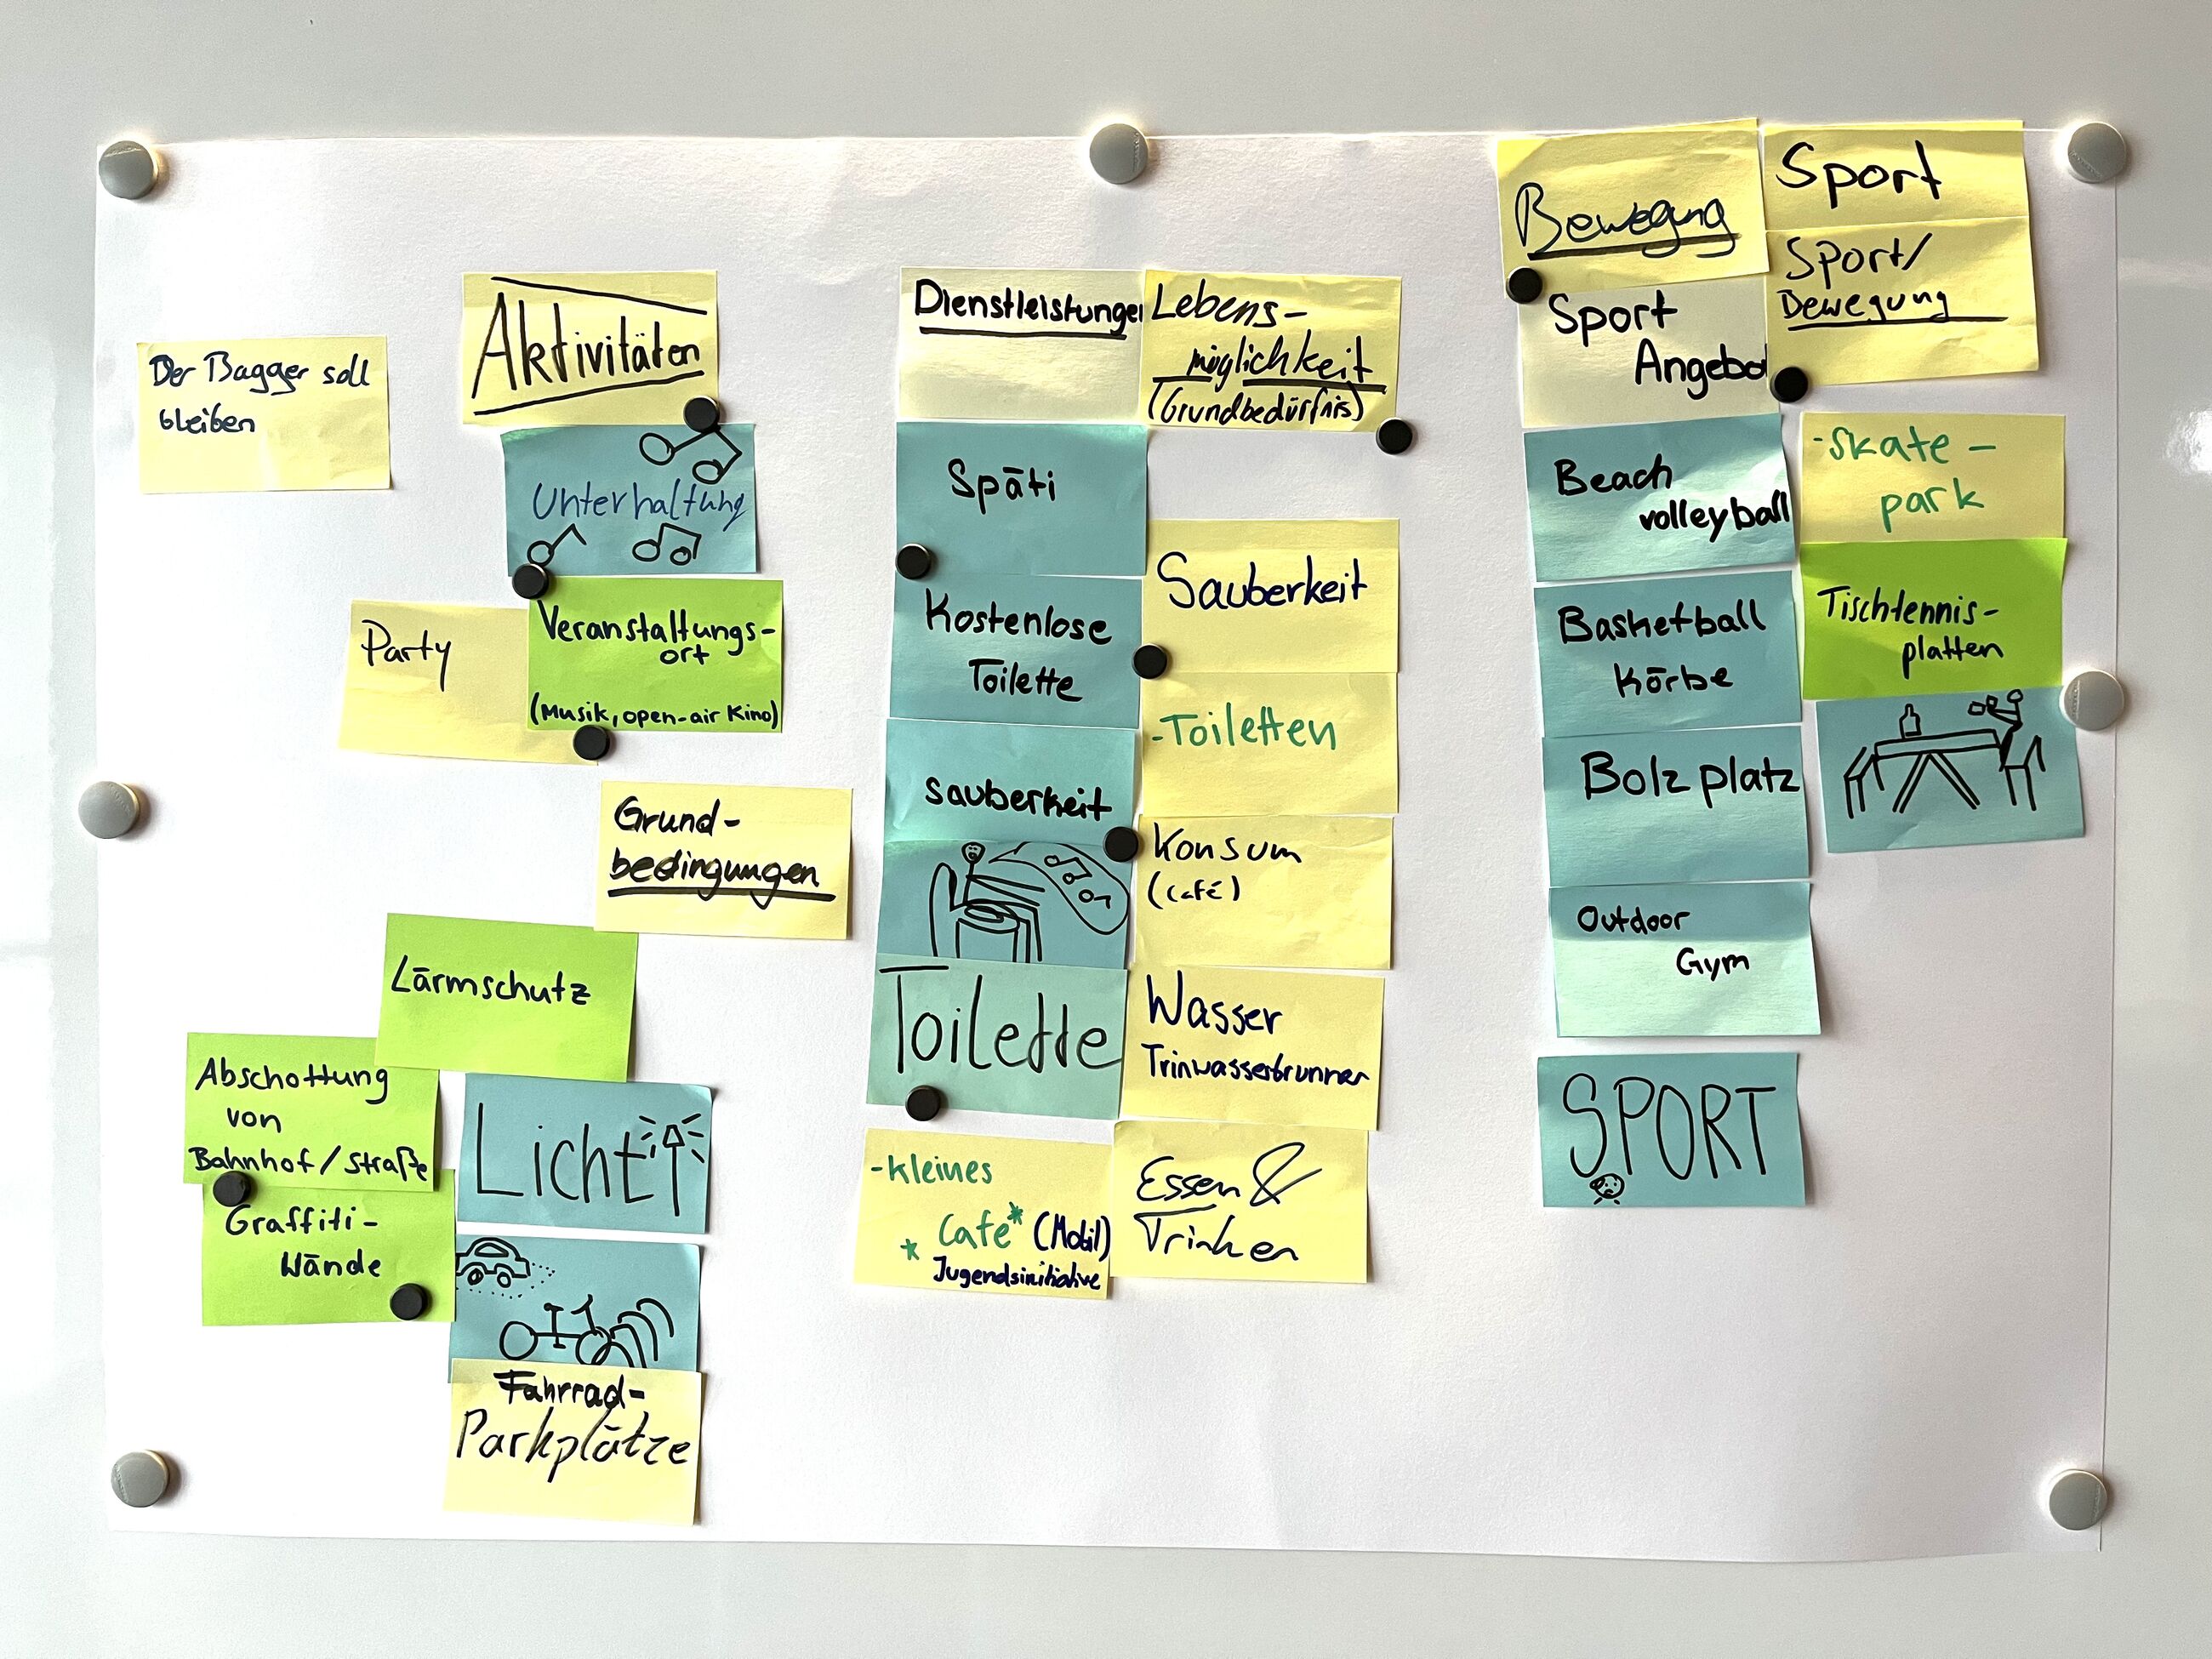 Der Bagger soll
bleiben
Aktivitäten
Unterhaltung
Party
Veranstaltungs-
ort
(Musik, open-air Kino)
Grund-
bedingungen
Lärmschutz
Abschottung
von
Bahnhof/Straße
Graffiti-
Wände
Licht
Fahrrad-
Parkplätze
Dienstleistungen
Späti
Kostenlose
Toilette
Sauberkeit
Toilette
-kleines
Café* (Mobil)
* Jugendsinitiative
Lebens-
möglichkeit
(Grundbedürfnis)
Sauberkeit
-Toiletten
Konsum
(café)
Wasser
Trinwasserbrunnen
Essen &
Trinken
Bewegung
Sport
Angebot
Beach
volleyball
Basketball
Körbe
Bolzplatz
Outdoor
Gym
SPORT
Sport
Sport/
Bewegung
-skate-
park
Tischtennis-
platten